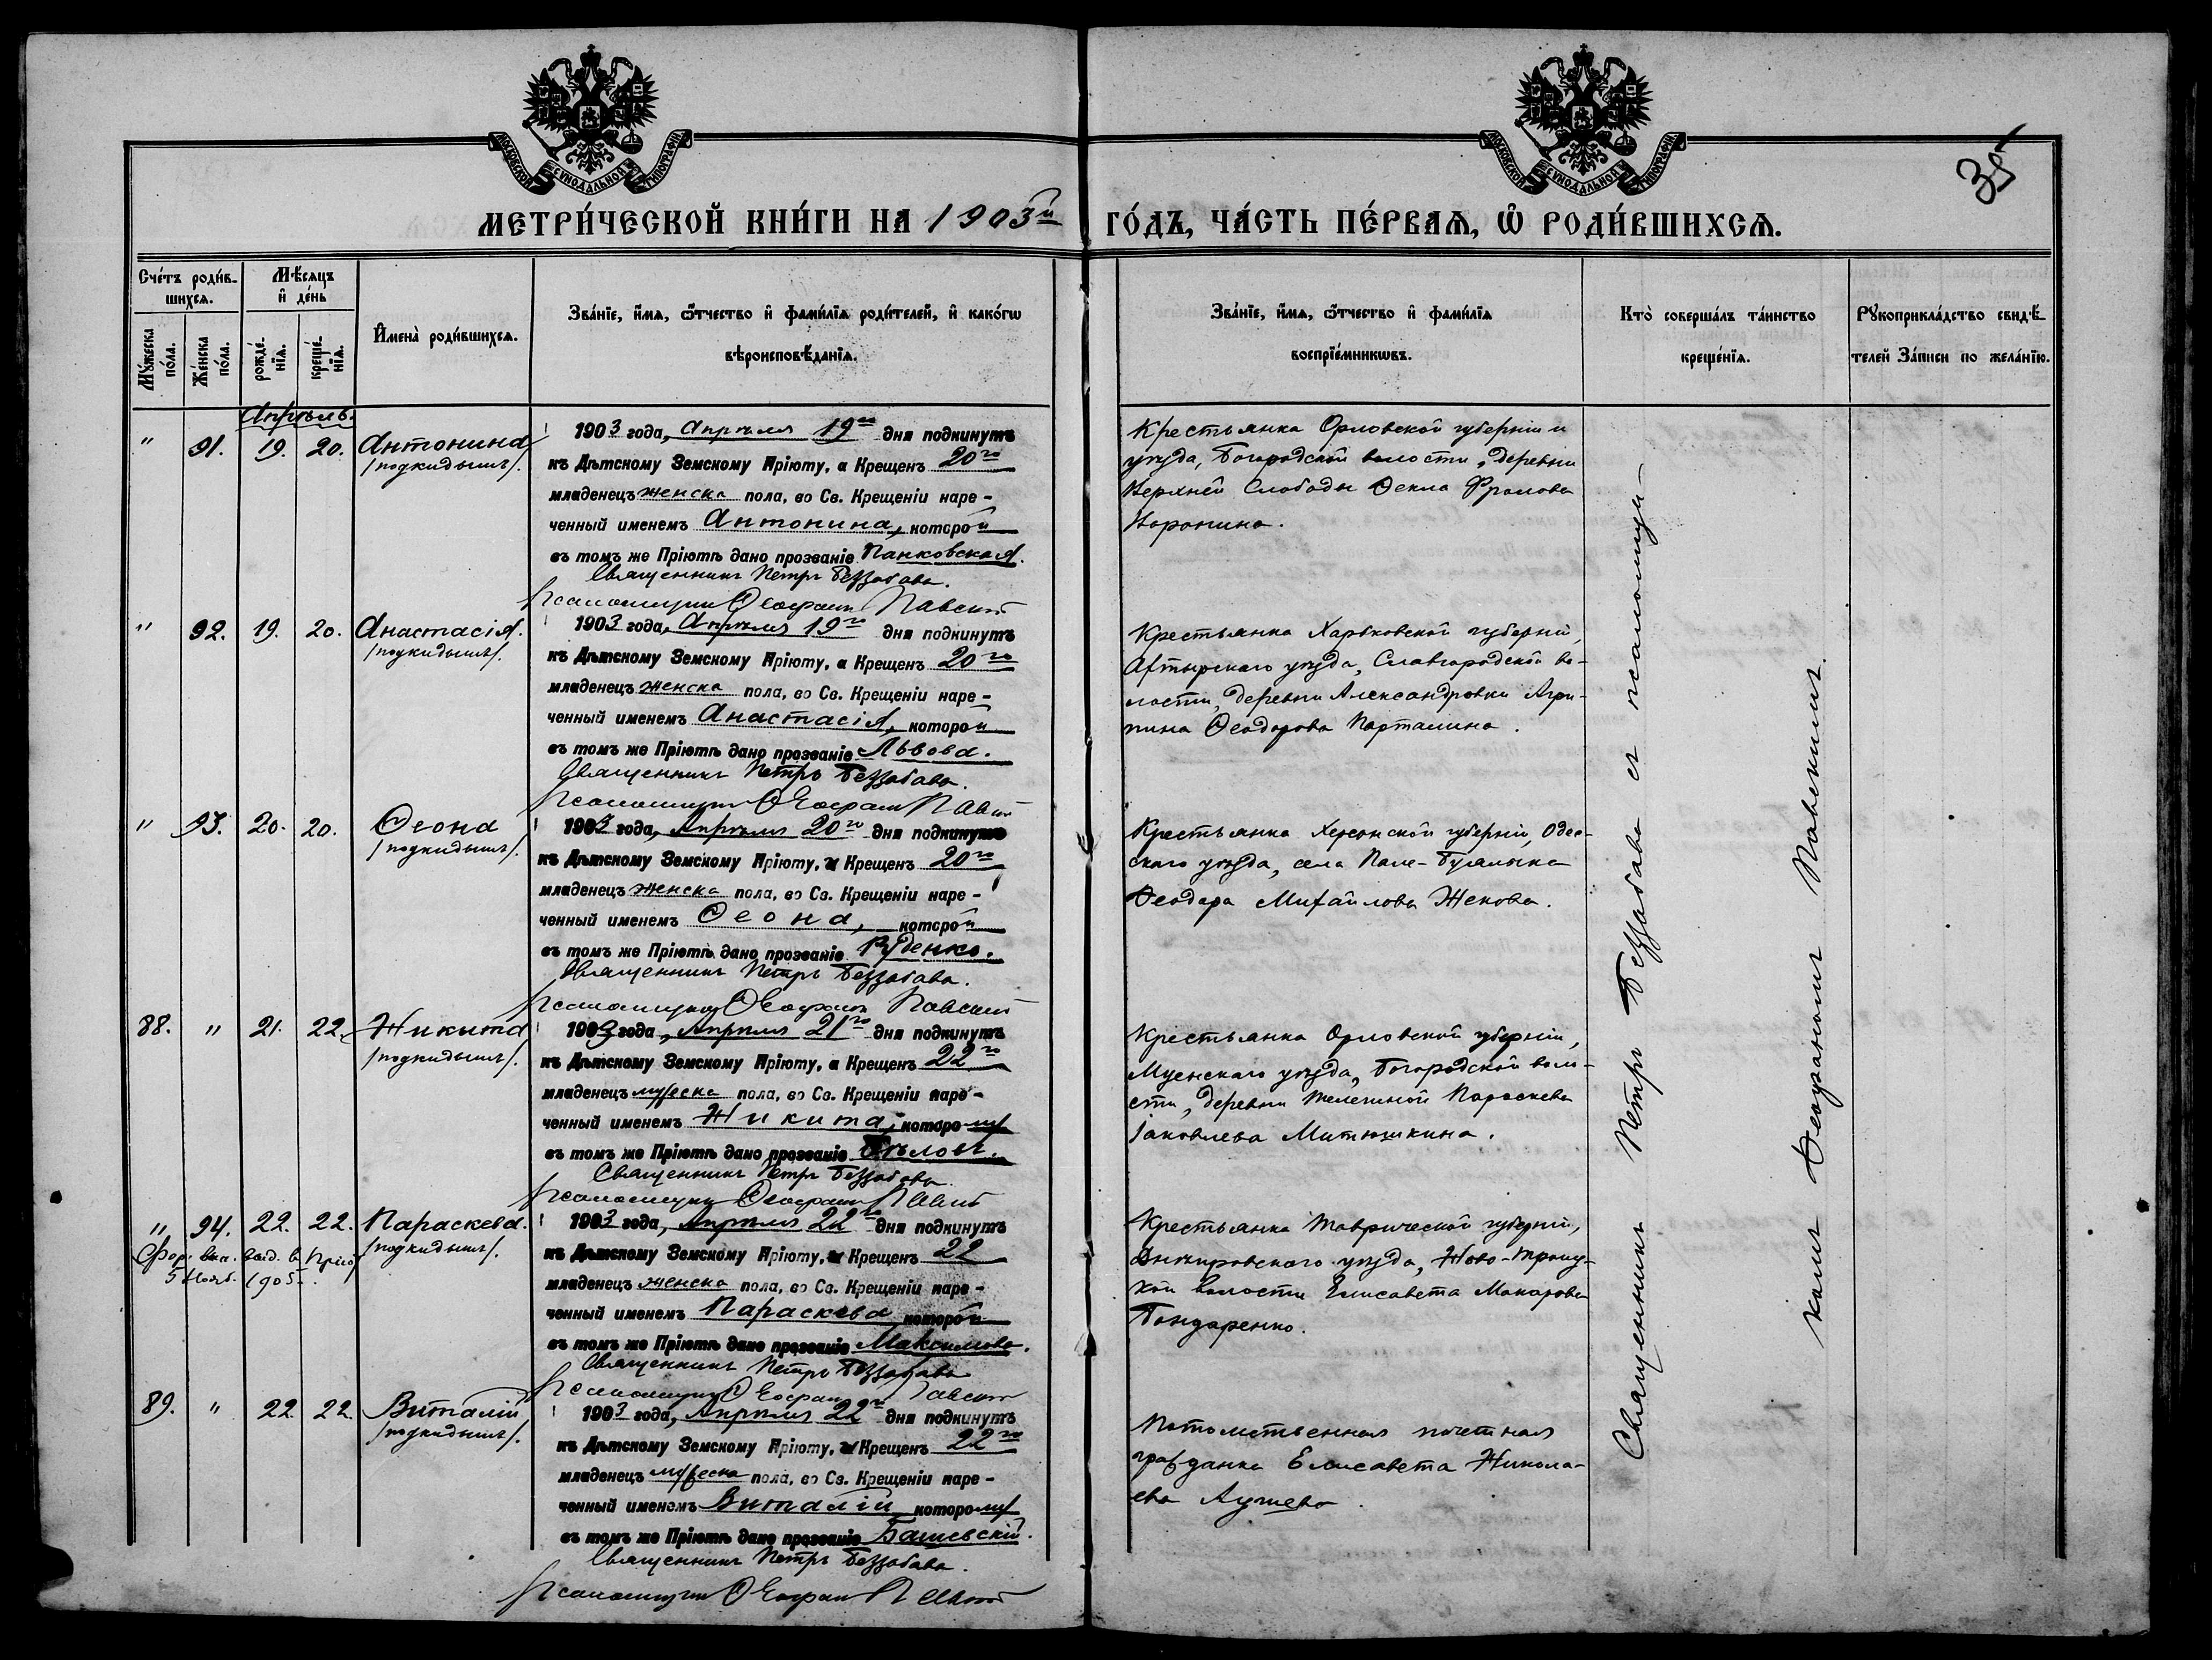 МОСКОВСКОЙ СѴНОДАЛЬНОЙ ТИПОГРАФІИ
МОСКОВСКОЙ СѴНОДАЛЬНОЙ ТИПОГРАФІИ
35
МЕТРИ́ЧЕСКОЙ КНИ́ГИ НА 1903й ГО́ДЪ, ЧА́СТЬ ПЕ́РВАѦ, Ѡ҆ РОДИ́ВШИХСѦ.
Сче́тъ роди́в-
шихсѧ.
Мꙋ́жеска по́ла.
Же́нска по́ла.
Мѣ́сѧцъ
и҆ де́нь
рожде́-
нїѧ.
креще́-
нїѧ.
И҆мена̀ роди́вшихсѧ.
Зва́нїе, и҆́мѧ, ѻ҆́тчество и҆ фами́лїѧ роди́телей, и҆ како́гѡ
вѣроисповѣ́данїѧ.
Зва́нїе, и҆́мѧ, ѻ҆́тчество и҆ фами́лїѧ
воспрїе́мникѡвъ.
Кто̀ соверша́лъ та́инство
креще́нїѧ.
Рꙋкоприкла́дство свидѣ́-
телей За́писи по жела́нїю.
Апрѣль.
" 91. 19. 20. Антонина
/подкидышъ/.
1903 года, Апрѣля 19го дня подкинутъ
къ Дѣтскому Земскому Пріюту, а Крещенъ 20го
младенецъ женска пола, во Св. Крещеніи наре-
ченный именемъ Антонина, которой
въ томъ же Пріютѣ дано прозваніе Панковская.
Священникъ Петръ Беззабава.
Псаломщикъ Ѳеофанъ Павскій
Крестьянка Орловской губерніи и
уѣзда, Богородской волости, деревни
Верхней Слободы Ѳекла Фролова
Воронина.
" 92. 19. 20. Анастасія.
/подкидышъ/.
1903 года, Апрѣля 19го дня подкинутъ
къ Дѣтскому Земскому Пріюту, а Крещенъ 20го
младенецъ женска пола, во Св. Крещеніи наре-
ченный именемъ Анастасія, которой
въ томъ же Пріютѣ дано прозваніе Львова.
Священникъ Петръ Беззабава.
Псаломщикъ Ѳеофанъ Павскій
Крестьянка Харьковской губерніи,
Ахтырскаго уѣзда, Славгородской во-
лости, деревни Александровки Агри-
пина Ѳеодорова
" 93. 20. 20. Ѳеона
/подкидышъ/.
1903 года, Апрѣля 20го дня подкинутъ
къ Дѣтскому Земскому Пріюту, а Крещенъ 20го
младенецъ женска пола, во Св. Крещеніи наре-
ченный именемъ Ѳеона, которой
въ томъ же Пріютѣ дано прозваніе Руденко.
Священникъ Петръ Беззабава.
Псаломщикъ Ѳеофанъ Павскій
Крестьянка Херсонской губерніи, Одес-
скаго уѣзда, села
Ѳеодора Михайлова Жекова.
88. " 21. 22. Никита
/подкидышъ/.
1903 года, Апрѣля 21го дня подкинутъ
къ Дѣтскому Земскому Пріюту, а Крещенъ 22го
младенецъ мужеска пола, во Св. Крещеніи наре-
ченный именемъ Никита, которому
въ томъ же Пріютѣ дано прозваніе
Священникъ Петръ Беззабава.
Псаломщикъ Ѳеофанъ Павскій
Крестьянка Орловской губерніи,
Мценскаго уѣзда, Богородской воло-
сти, деревни Параскева
Іаковлева Митюшкина.
" 94. 22. 22. Параскева.
/подкидышъ/.
5 Нояб. 1905.
1903 года, Апрѣля 22го дня подкинутъ
къ Дѣтскому Земскому Пріюту, а Крещенъ 22
младенецъ женска пола, во Св. Крещеніи наре-
ченный именемъ Параскева которой
въ томъ же Пріютѣ дано прозваніе Максимова.
Священникъ Петръ Беззабава
Псаломщикъ Ѳеофанъ Павскій
Крестьянка Таврической губерніи,
Днѣпровскаго уѣзда, Ново-Троиц-
кой волости Елисавета Макарова
Бондаренко.
89. " 22. 22. Виталій
/подкидышъ/.
1903 года, Апрѣля 22го дня подкинутъ
къ Дѣтскому Земскому Пріюту, а Крещенъ 22го
младенецъ мужеска пола, во Св. Крещеніи наре-
ченный именемъ Виталій которому
въ томъ же Пріютѣ дано прозваніе
Священникъ Петръ Беззабава.
Псаломщикъ Ѳеофанъ Павскій
Потомственная почетная
гражданка Елисавета Никола-
ева
Священникъ Петръ Беззабава съ псаломщи-
комъ Ѳеофаномъ Павскимъ.